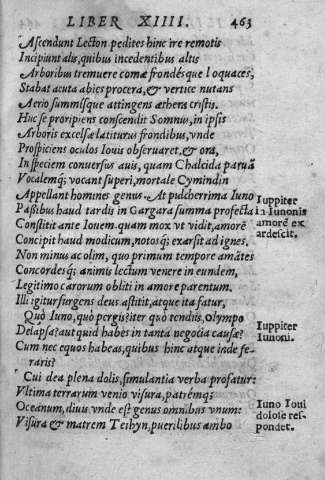 LIBER XIIII. 463
Ascendunt Lecton pedites hinc ire remotis
Incipiunt alis, quibus incedentibus altis
Arboribus tremuere comæ frondésque loquaces,
Stabat acuta abies procera, & vertice nutans
Aerio summisque attingens æthera cristis.
Huc se proripiens conscendit Somnus, in ipsis
Arboris excelsæ latiturus frondibus, vnde
Prospiciens oculos Iouis obseruaret, & ora,
In speciem conuersus auis, quam Chalcida paruā
Vocalemq; vocant superi, mortale Cymindin
Appellant homines genus. At pulcherrima Iuno
Paßibus haud tardis in Gargara summa profecta
Iuppiter
in Iunonis
amore ex
ardescit.
Constitit ante Iouem. quam mox vt vidit, amorē
Concipit haud modicum, notosq; exarsit ad ignes.
Non minus ac olim, quo primum tempore amātes
Concordesq; animis lectum venere in eundem,
Legitimo carorum obliti in amore parentum.
Illi igitur surgens deus astitit, atque ita fatur.
Quò Iuno, quò pergis? iter quò tendis, Olympo
Delapsa? aut quid habes in tanta negocia causæ?
Iuppiter
Iunoni.
Cum nec equos habeas, quibus hinc atque inde fe-
raris?
Cui dea plena dolis, simulantia verba profatur:
Vltima terrarum venio visura, patrémq;
Oceanum, diuis vnde est genus omnibus vnum:
Visura & matrem Tethyn, puerilibus ambo
Iuno Ioui
dolose res-
pondet.